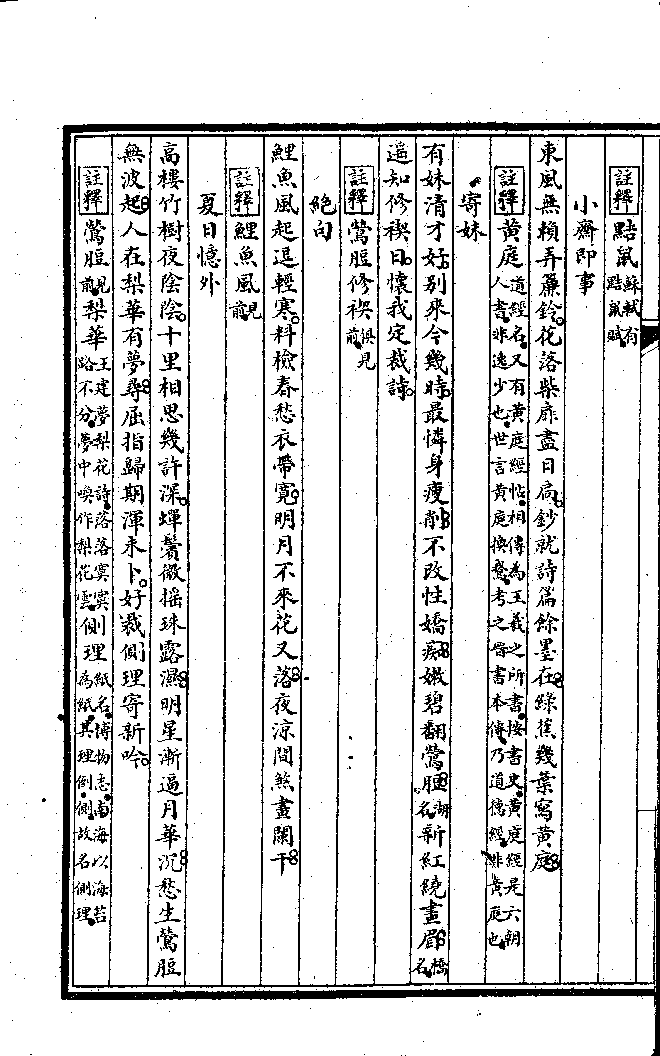 註釋 點鼠蘇軾有點鼠賦
小齋即事
東風無賴弄簾鈴。花落柴扉盡日扃。鈔就詩篇餘墨在。綠蕉幾葉寫黃庭。
註釋 黃庭道經名。又有黃庭經帖。相傳為王羲之所書。按書史。黃庭經是六朝人書。非逸少也。世言黃庭換鵞。考之晉書本傳。乃道德經。非黃庭也。
寄妹
有妹清才好。別來今幾時。最憐身瘦削。不改性嬌癡。嫩碧翻鶯脰湖名。新紅繞畫眉橋名。
遙知修禊日。懷我定裁詩。
註釋 鶯脰修禊俱見前
絕句
鯉魚風起逗輕寒。料檢春愁衣帶寬。明月不來花又落。夜涼間煞畫闌干。
註釋 鯉魚風見前
夏日憶外
高樓竹樹夜陰陰。十里相思幾許深。嚲鬢微搖珠露濕。明星漸逼月華沉。愁生鶯脰
無波起。人在梨華有夢尋。屈指歸期渾未卜。好裁側理寄新吟。
註釋 鶯脰見前梨華王建夢梨花詩。落落寞寞路不分。夢中喚作梨花雲。側理紙名。博物志。南海以海苔為紙。其理倒側。故名側理。